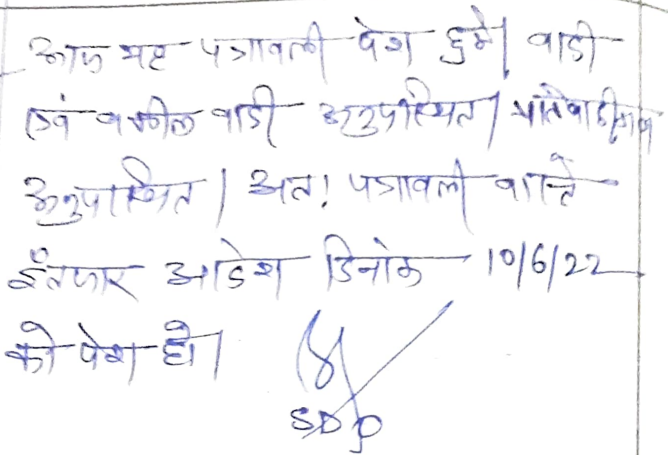 आज यह पत्रावली पेश हुई। वादी
एवं वकील वादी अनुपस्थित। प्रतिवादीगण
अनुपस्थित। अतः पत्रावली वास्ते
इंतजार आदेश दिनांक 10/6/22
को पेश हो।
SDO